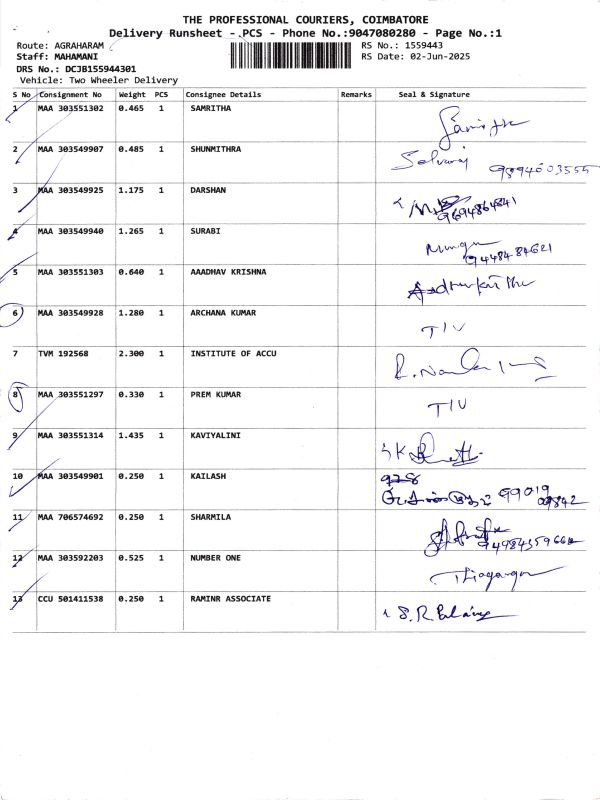 THE PROFESSIONAL COURIERS, COIMBATORE
Delivery Runsheet - PCS - Phone No.:9047080280 - Page No.:1
Route: AGRAHARAM RS No.: 1559443
Staff: MAHAMANI RS Date: 02-Jun-2025
DRS No.: DCJB155944301
Vehicle: Two Wheeler Delivery
S No Consignment No Weight PCS Consignee Details Remarks Seal & Signature
1 MAA 303551302 0.465 1 SAMRITHA
2 MAA 303549907 0.485 1 SHUNMITHRA Selvaraj 9894603555
3 MAA 303549925 1.175 1 DARSHAN 9694864841
4 MAA 303549940 1.265 1 SURABI 9448484621
5 MAA 303551303 0.640 1 AAADHAV KRISHNA
6 MAA 303549928 1.280 1 ARCHANA KUMAR TIV
7 TVM 192568 2.300 1 INSTITUTE OF ACCU
8 MAA 303551297 0.330 1 PREM KUMAR TIV
9 MAA 303551314 1.435 1 KAVIYALINI
10 MAA 303549901 0.250 1 KAILASH 99019 09842
11 MAA 706574692 0.250 1 SHARMILA
12 MAA 303592203 0.525 1 NUMBER ONE
13 CCU 501411538 0.250 1 RAMINR ASSOCIATE